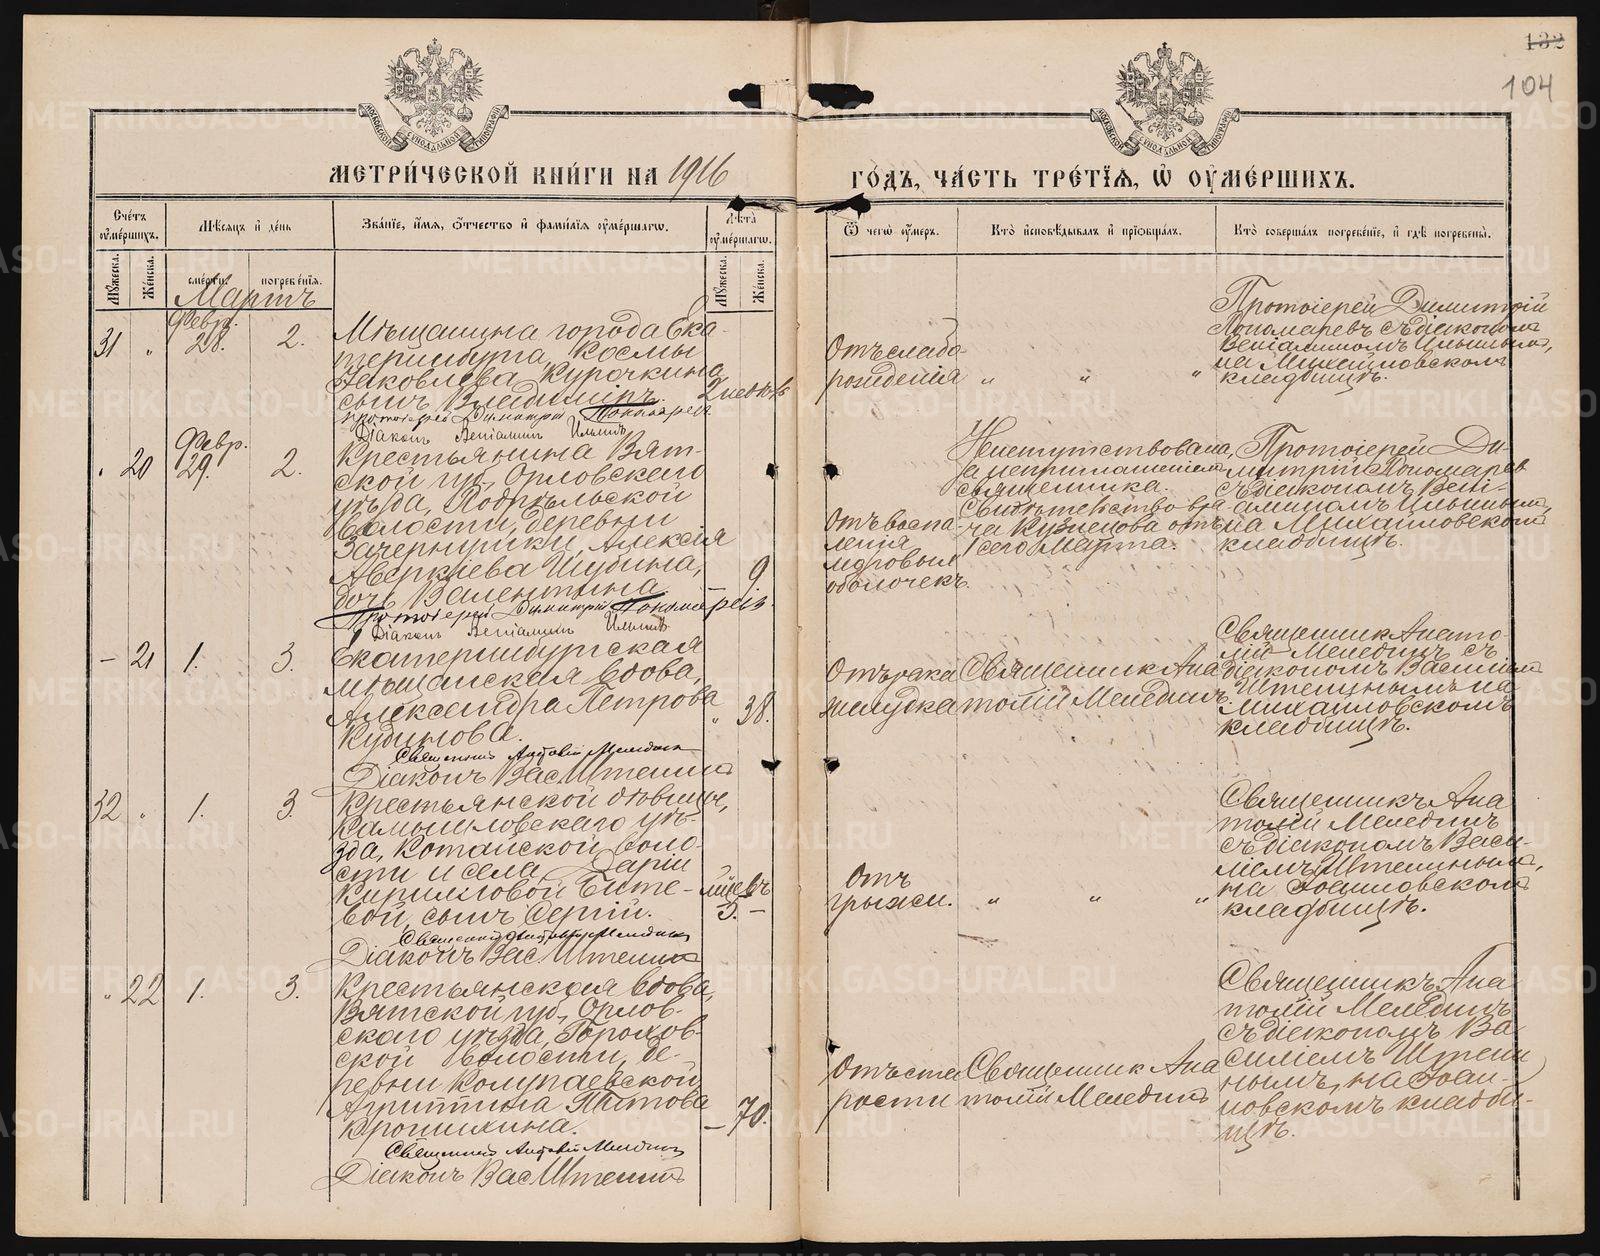 132
104
МЕТРИ́ЧЕСКОЙ КНИ́ГИ НА 1916
ГО́ДЪ, ЧА́СТЬ ТРЕ́ТЇѦ, Ѿ ОУМЕ́РШИХЪ.
Сче́тъ оуме́ршихъ.
Мѣ́сѧцъ и҆ де́нь
Зва́нїе, и҆́мѧ, ѻ҆́тчество и҆ фами́лїѧ оуме́ршагѡ.
Лѣ́та оуме́ршагѡ.
Ѿ чегѡ̀ оу́меръ.
Кто̀ и҆сповѣ́дывалъ и҆ прїѡбща́лъ.
Кто̀ соверша́лъ погребе́нїе, и҆ гдѣ̀ погребены̀.
Мꙋ́жеска.
Же́нска.
сме́рти.
погребе́нїѧ.
Мꙋ́жеска.
Же́нска.
Мартъ
31 „
Февр.
28.
2.
Мѣщанина города Ека-
теринбурга, Космы
Іаковлева Курочкина
сынъ Владиміръ.
2 недѣль
Протоіерей Димитрій Пономаревъ
Діаконъ Веніаминъ Ильинъ
Отъ слабо-
рожденія
„ „ „
Протоіерей Димитрій
Пономаревъ съ діакономъ
Веніаминомъ Ильинымъ,
на Михайловскомъ
кладбищѣ.
20
Февр.
29.
2.
Крестьянина Вят-
ской губ., Орловскаго
уѣзда, Подрѣльской
волости, деревни
Алексія
Аверкіева Шубина,
дочь Валентина
9
Протоіерей Димитрій Пономаревъ.
Діаконъ Веніаминъ Ильинъ
Отъ воспа-
ленія
мозговыхъ
оболочекъ.
священника.
Свидѣтельство вра-
ча Кузнецова отъ
1 сего Марта.
Протоіерей Ди-
митрій Пономаревъ
съ діакономъ Вені-
аминомъ Ильинымъ,
на Михайловскомъ
кладбищѣ.
– 21
1.
3.
Екатеринбургская
мѣщанская вдова,
Александра Петрова
Кудинова.
„ 38.
Священникъ Анатолій Мелединъ
Діаконъ Вас. Штенинъ
Отъ рака
желудка
Священникъ Ана
толій Мелединъ.
Священникъ Анато-
лій Мелединъ съ
діакономъ Василіемъ
Штенинымъ на
Михайловскомъ
кладбищѣ.
32 „
1.
3.
Крестьянской дѣвицы,
Камышловскаго уѣ-
зда, Катайской воло-
сти и села, Даріи
Кирилловой Бите-
вой, сынъ Сергій.
мѣсяцевъ
3. –
Священникъ Анатолій Мелединъ
Діаконъ Вас. Штенинъ
Отъ
грыжи.
„ „ „
Священникъ Ана
толій Мелединъ
съ діакономъ Васи-
ліемъ Штенинымъ,
на Іоанновскомъ
кладбищѣ.
„ 22
1.
3.
Крестьянская вдова,
Вятской губ., Орлов-
скаго уѣзда, Горохов-
ской волости, де-
ревни Колупаевской
Агриппина Титова
Кропихина.
– 70.
Священникъ Анатолій Мелединъ
Діаконъ Вас. Штенинъ
Отъ ста
рости
Священникъ Ана
толій Мелединъ
Священникъ Ана
толій Мелединъ
съ діакономъ Ва-
силіемъ Штени
нымъ, на Іоан-
новскомъ кладби-
щѣ.